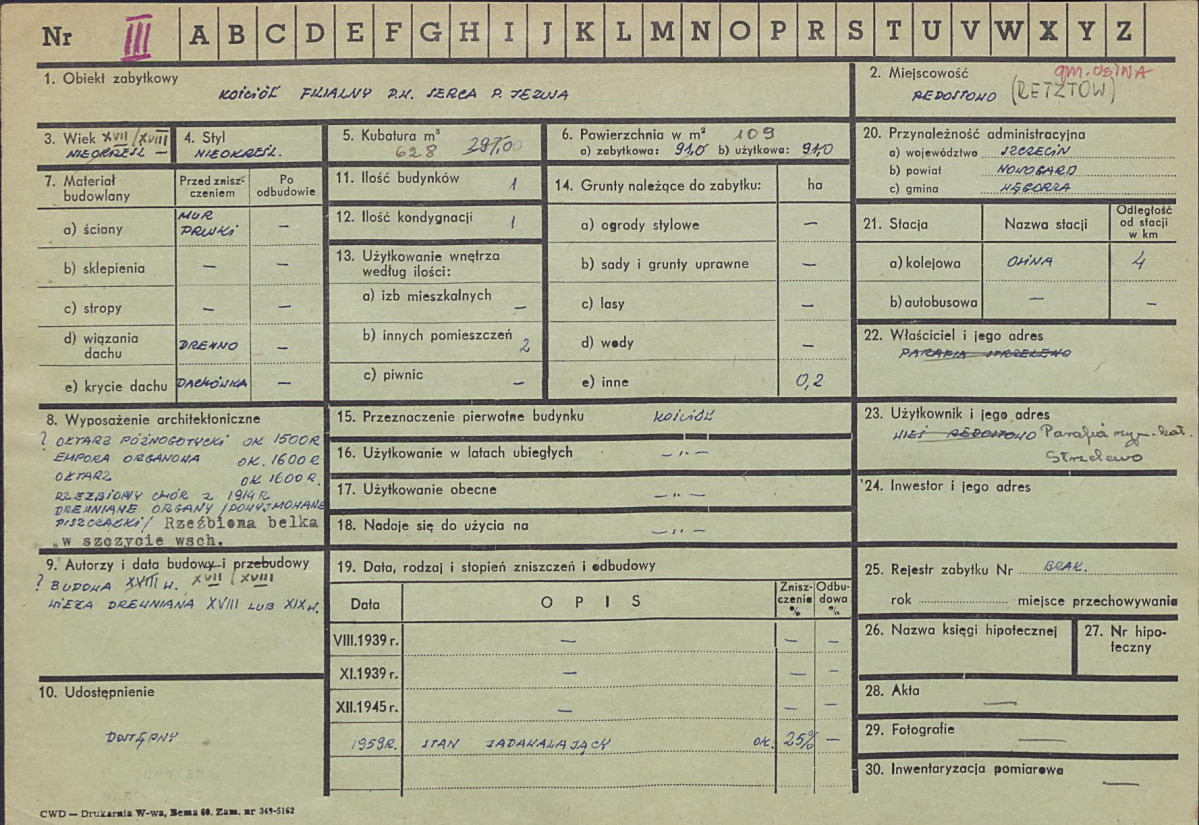 Nr III A B C D E F G H I J K L M N O P R S T U V W X Y Z
1. Obiekt zabytkowy
KOŚCIÓŁ FILIALNY P.W. SERCA P. JEZUSA
2. Miejscowość
gm. OSINA
REDOSTOWO (RETZTOW)
3. Wiek XVII/XVIII
NIEOKREŚL —
4. Styl
NIEOKREŚL.
5. Kubatura m³
628 297,00
6. Powierzchnia w m² 109
a) zabytkowa: 91,0 b) użytkowa: 91,0
20. Przynależność administracyjna
a) województwo SZCZECIN
b) powiat NOWOGARD
c) gmina WĘGORZA
7. Materiał budowlany
Przed zniszczeniem
Po odbudowie
a) ściany MUR PRUSKI —
b) sklepienia — —
c) stropy — —
d) wiązania dachu DREWNO —
e) krycie dachu DACHÓWKA —
11. Ilość budynków 1
12. Ilość kondygnacji 1
13. Użytkowanie wnętrza
według ilości:
a) izb mieszkalnych —
b) innych pomieszczeń 2
c) piwnic —
14. Grunty należące do zabytku: ha
a) ogrody stylowe —
b) sady i grunty uprawne —
c) lasy —
d) wody —
e) inne 0,2
21. Stacja Nazwa stacji Odległość od stacji w km
a) kolejowa OSINA 4
b) autobusowa — —
22. Właściciel i jego adres
PARAFIA STRZELEWO
8. Wyposażenie architektoniczne
? OŁTARZ PÓŹNOGOTYCKI OK 1500R
EMPORA ORGANOWA OK. 1600 R
OŁTARZ OK 1600 R.
RZEŹBIONY CHÓR Z 1914 R
DREWNIANE ORGANY /POWYJMOWANE
PISZCZAŁKI/ Rzeźbiona belka
w szczycie wsch.
15. Przeznaczenie pierwotne budynku KOŚCIÓŁ
16. Użytkowanie w latach ubiegłych — „ —
17. Użytkowanie obecne — „ —
18. Nadaje się do użycia na — „ —
23. Użytkownik i jego adres
WIEŚ REDOSTOWO Parafia rzym.-kat.
Strzelewo
24. Inwestor i jego adres
9. Autorzy i data budowy i przebudowy
? BUDOWA XVIII W. XVII / XVIII
WIEŻA DREWNIANA XVIII LUB XIX W.
19. Data, rodzaj i stopień zniszczeń i odbudowy
Data OPIS Zniszczenie % Odbudowa %
VIII.1939 r. — — —
XI.1939 r. — — —
XII.1945 r. — — —
1959R. STAN ZADAWALAJĄCY OK. 25% —
25. Rejestr zabytku Nr BRAK.
rok miejsce przechowywania
26. Nazwa księgi hipotecznej
27. Nr hipoteczny
10. Udostępnienie
DOSTĘPNY
28. Akta —
29. Fotografie —
30. Inwentaryzacja pomiarowa —
CWD — Drukarnia W-wa, Bema 60. Zam. nr 349-5162